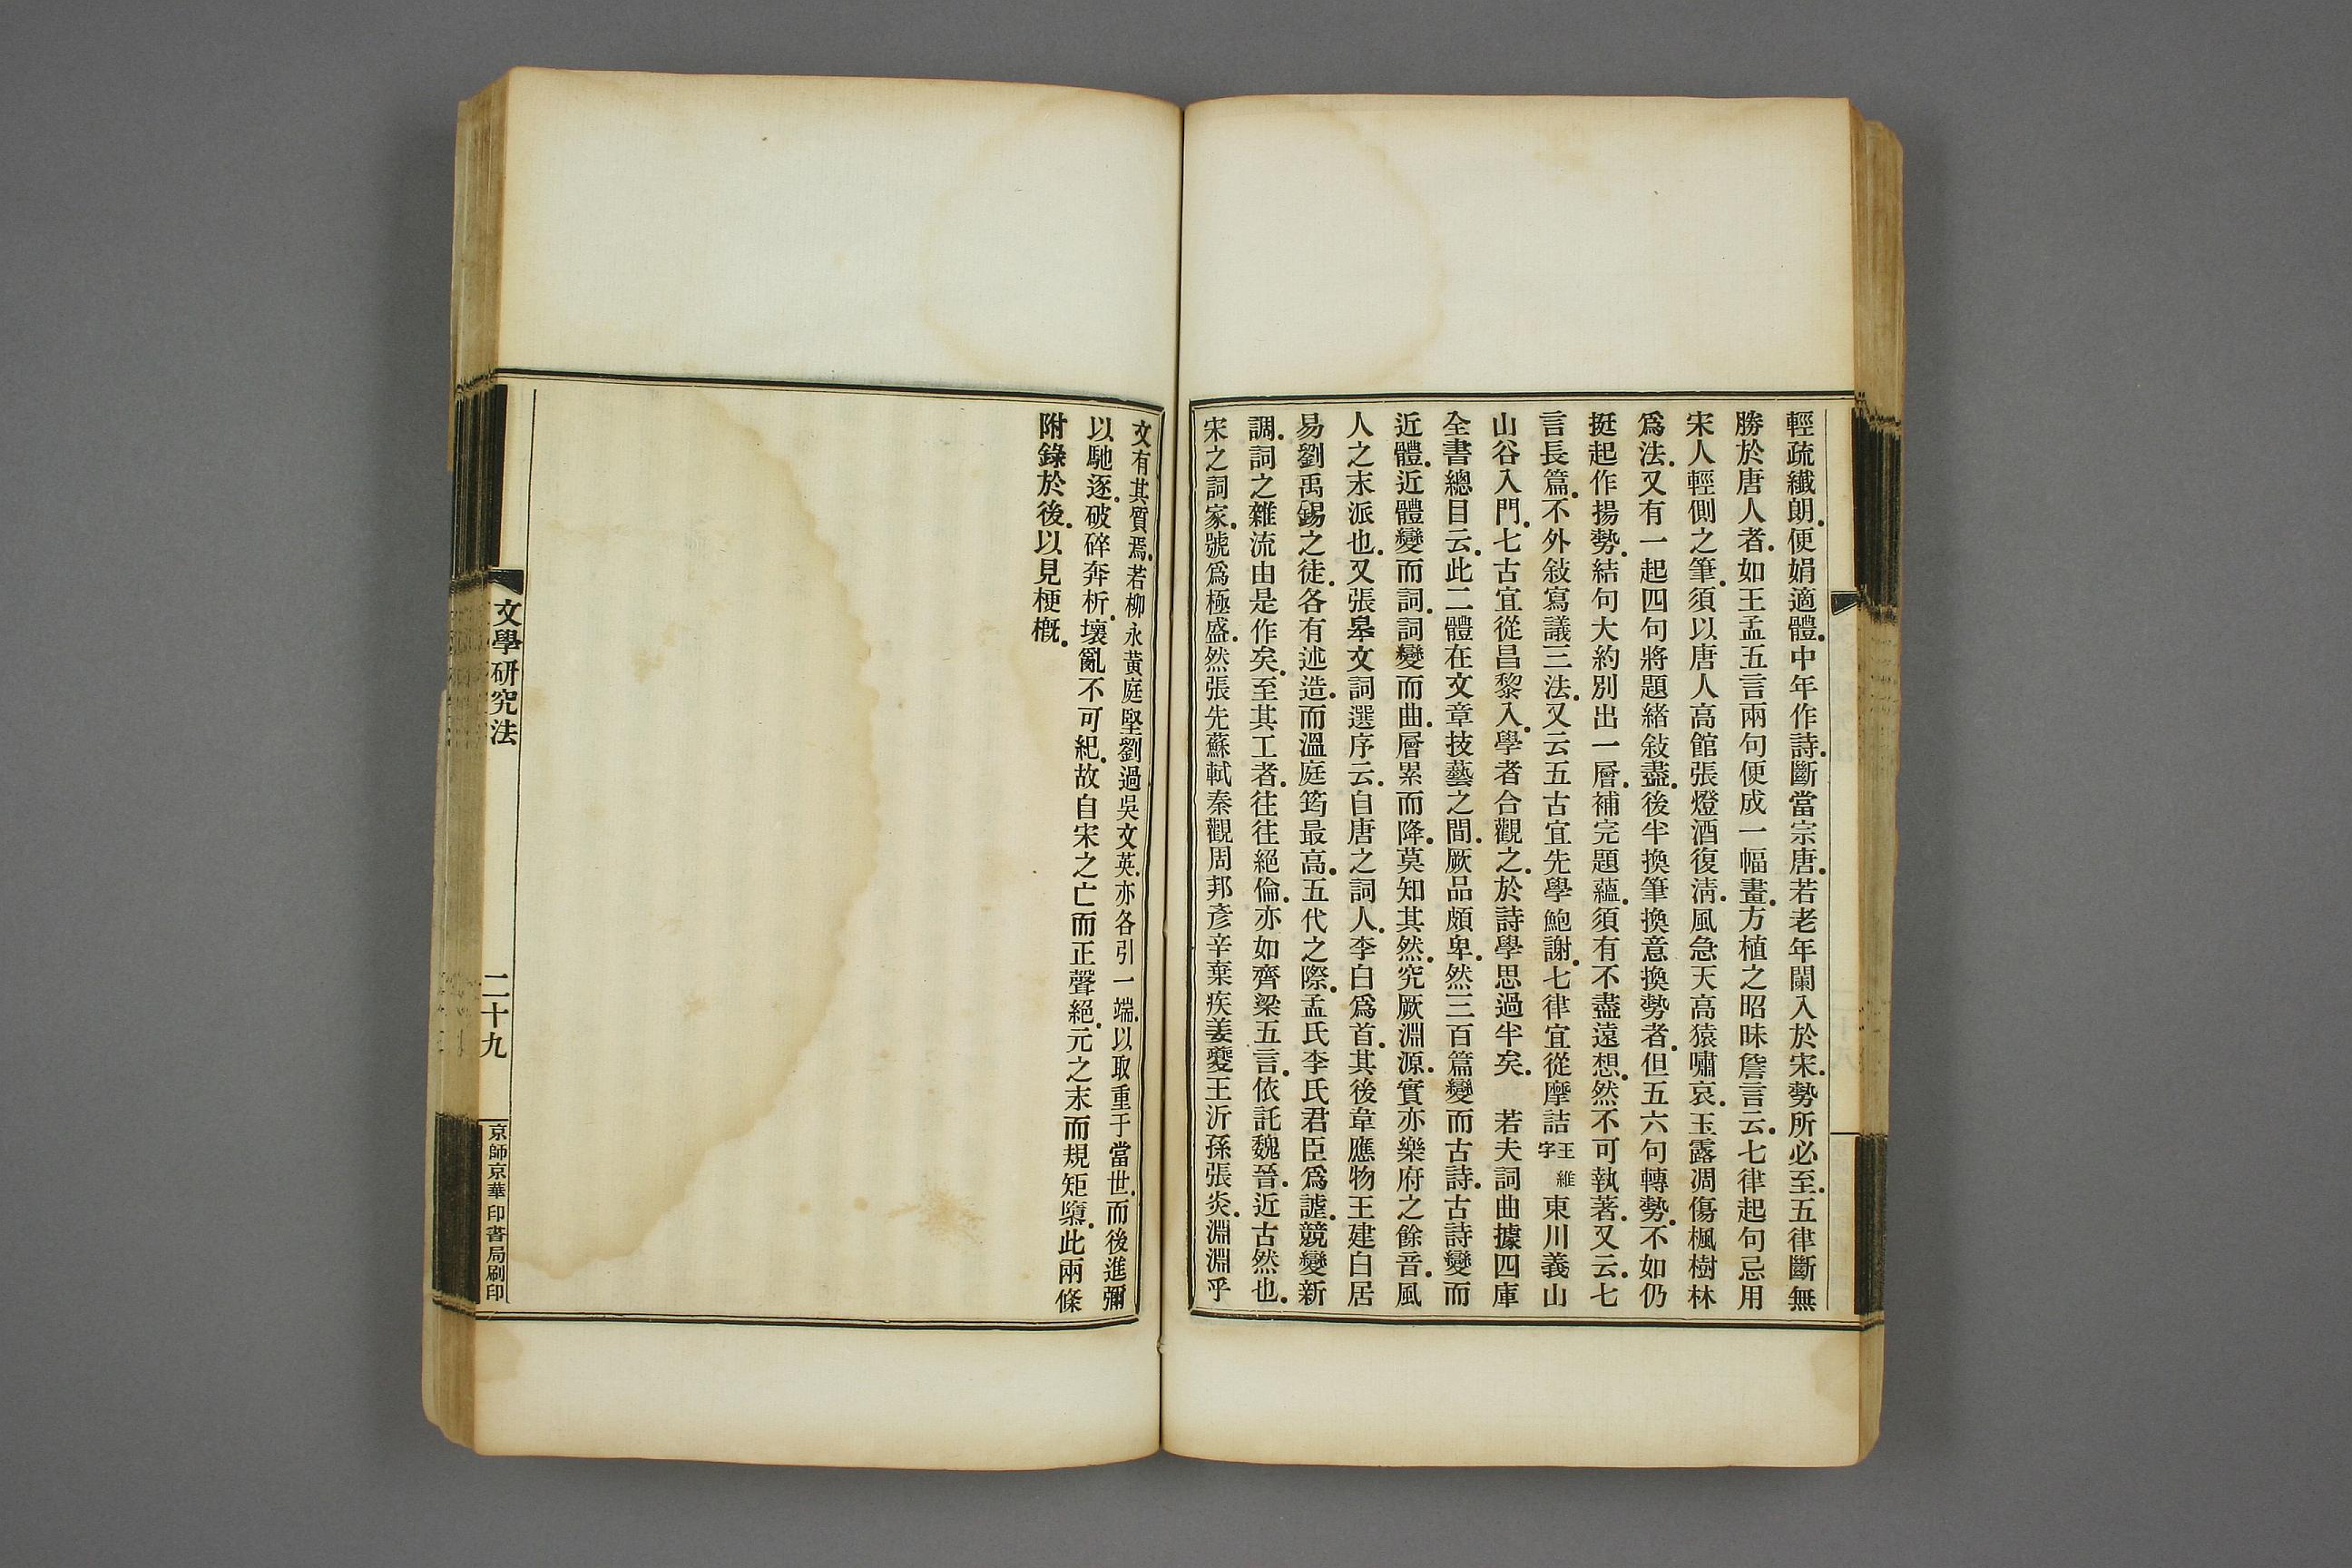 輕疏纖朗．便娟適體．中年作詩．斷當宗唐．若老年闌入於宋．勢所必至．五律斷無
勝於唐人者．如王孟五言兩句便成一幅畫．方植之昭昧詹言云．七律起句忌用
宋人輕側之筆．須以唐人高館張燈酒復淸．風急天高猿嘯哀．玉露凋傷楓樹林
爲法．又有一起四句將題緒敍盡．後半換筆換意換勢者．但五六句轉勢．不如仍
挺起作揚勢．結句大約別出一層．補完題蘊．須有不盡遠想．然不可執著．又云．七
言長篇．不外敍寫議三法．又云五古宜先學鮑謝．七律宜從摩詰王維字東川義山
山谷入門．七古宜從昌黎入．學者合觀之．於詩學思過半矣．　若夫詞曲據四庫
全書總目云．此二體在文章技藝之間．厥品頗卑．然三百篇變而古詩．古詩變而
近體．近體變而詞．詞變而曲．層累而降．莫知其然．究厥淵源．實亦樂府之餘音．風
人之末派也．又張皋文詞選序云．自唐之詞人．李白爲首．其後韋應物王建白居
易劉禹錫之徒．各有述造．而溫庭筠最高．五代之際．孟氏李氏君臣爲謔．競變新
調．詞之雜流由是作矣．至其工者．往往絕倫．亦如齊梁五言．依託魏晉．近古然也．
宋之詞家．號爲極盛．然張先蘇軾秦觀周邦彥辛棄疾姜夔王沂孫張炎．淵淵乎
文有其質焉．若柳永黃庭堅劉過吳文英．亦各引一端．以取重于當世．而後進彌
以馳逐．破碎奔析．壞亂不可紀．故自宋之亡而正聲絕．元之末而規矩隳．此兩條
附錄於後．以見梗槪．
文學硏究法
二十九
京師京華印書局刷印